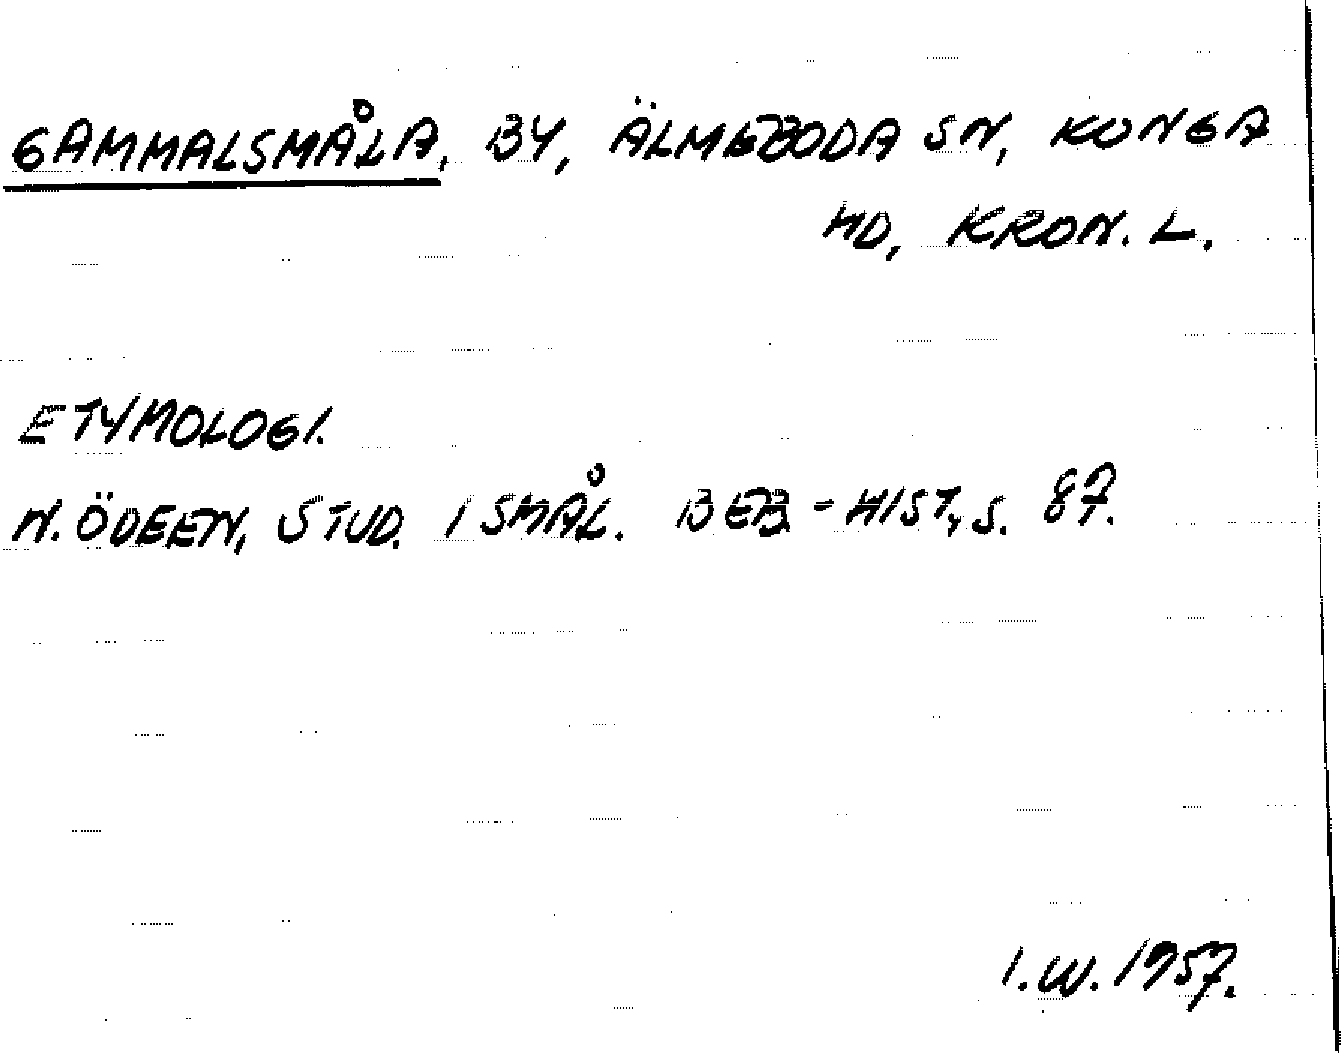 GAMMALSMÅLA, BY, ÄLMEBODA SN, KONGA
HD, KRON. L.
ETYMOLOGI.
N. ÖDEEN, STUD. I SMÅL. BEB-HIST., S. 87.
I.W. 1957.